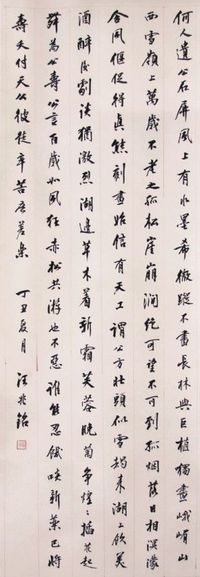 何人遺公石屏風上有水墨希微蹤不畫長林與巨植獨畫峨嵋山
西雪嶺上萬歲不老之孤松崖崩澗絕可望不可到孤煙落日相溟濛
含風偃得真態刻畫始信有天工謂公方壯頭似雪朅來湖上飲美
酒醉後劇談猶激烈湖邊草木着新霜芙蓉晚菊爭煌煌插花起
舞為公壽公言百歲如風狂赤松共游也不惡誰能忍飢啖新藥已將
壽夭付天公彼徒辛苦吾差樂 丁丑夏月 汪兆銘